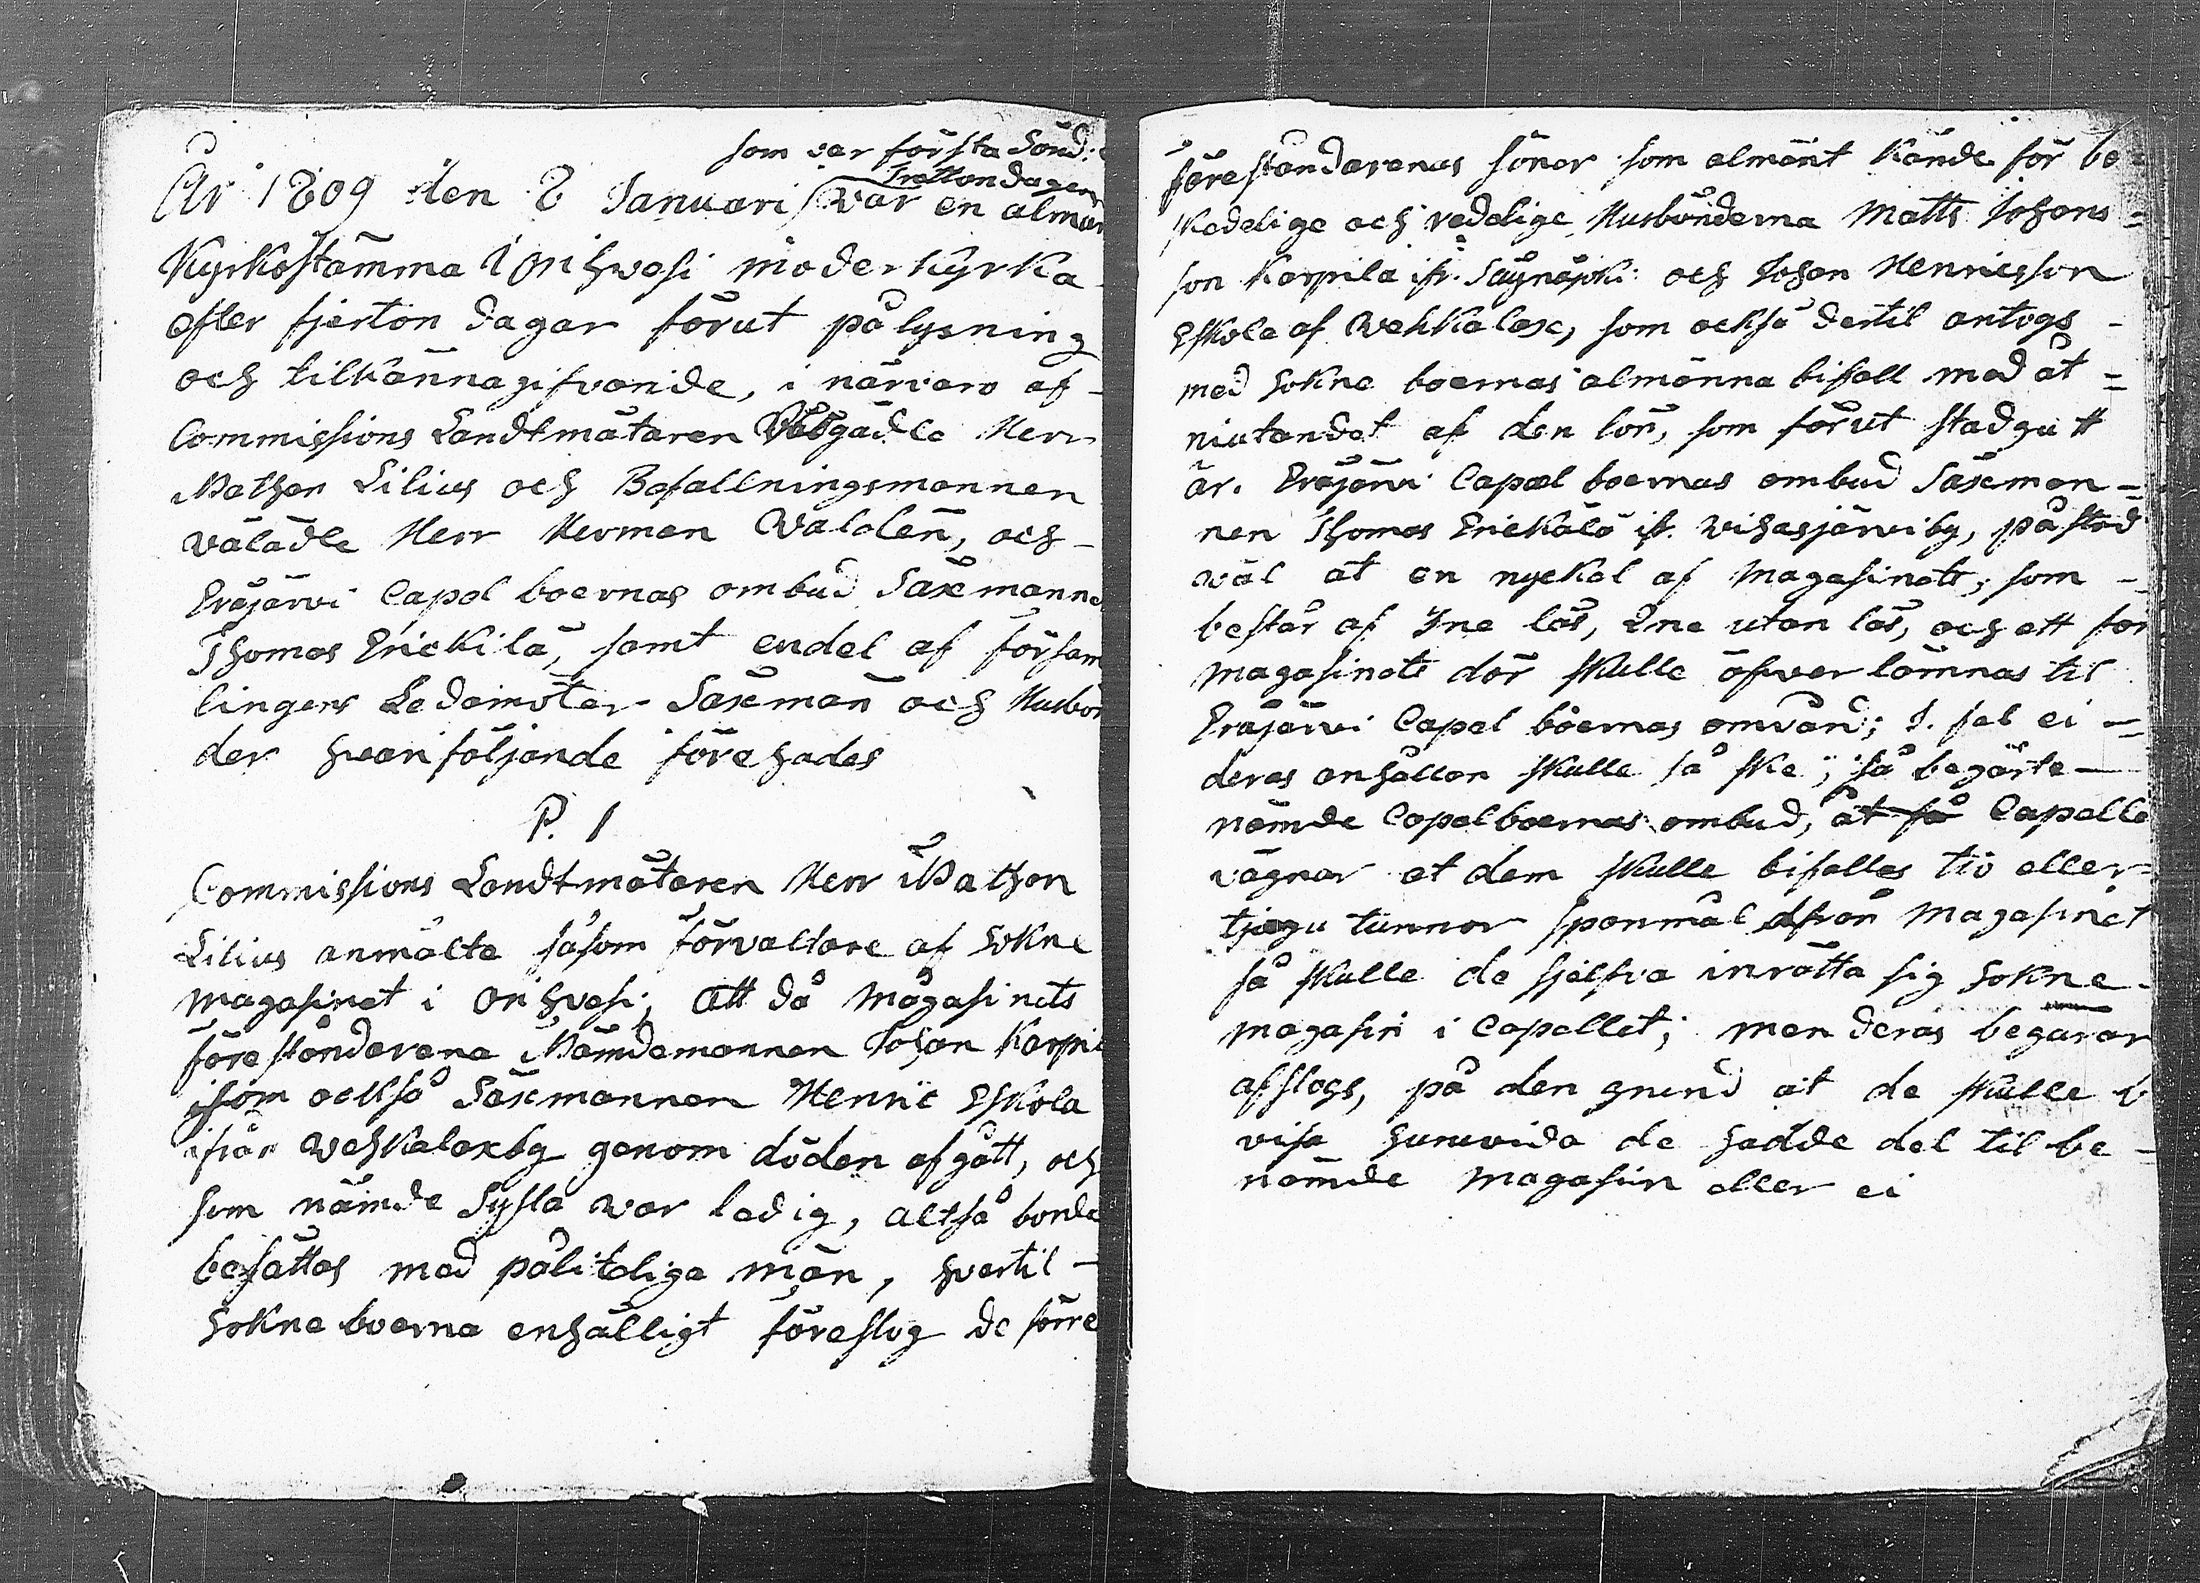 som var första Sönd:
Trettondagen
År 1809 den 8 Januari, var en alman
Kyrkostämma i Orihvesi moderkyrka
efter fjorton dagar förut pålysning
och tilkännagifvande, i närvaro af
Commissions Landtmätaren Herr
Nathan Lilius och Befallningsmannen
välädle Herr Herman Walden, och
Eräjärvi Capel boernas ombud Sexmanne
Thomas Erickilä, samt endel af försam
lingens Ledamöter Sexmän och Husbön
der hvarifölijande förehades
P. 1
Commissions Landtmätaren Herr Nathan
Lilius anmälte såsom förvaltare af Sokne
magasinet i Orihvesi; att då magasinets
föreståndarena Nämdemannen Johan Karpi
som också Sexmannen Henric Eskola
ifrån Wehkalaxby genom döden afgått, och
som nämde Sysla var ledig, altså borde
besättas med pålitelige män, hvartil
Sokne boerna enhälligt föreslog de förre
föreståndarenas söner som almänt kände för be
skedelige och redelige Husbönderna Matts Johans
son Karpila ifr. Säynäjoki och Johan Henricsson
Eskola af Wehkalax, som också dertil antogs
med sokne boernas almänna bifall med åt
niutandet af den lön, som förut stadgatt
är. Eräjärvi Capel boernas ombud Sexman
nen Thomas Erickälä ifr. Wihasjärviby, påstod
väl at en nyckel af Magasinet, som
består af Ine lås, 2ne utan lås, och ett for
magasinets dör skulle öfver lämnas til
Eräjärvi Capel boernas omvård; I. fal ei
deras anhållan skulle så ske, så begärte
nämde Capelboernas ombud, at få Capelle
vägnar at dem skulle bifalles tio eller
tjugu tunnor spanmål från Magasinet
så skulle de sjelfva inrätta sig Sokne
magasin i Capellet; men deras begäran
afslogs, på den grund at de skulle b
visa huruvida de hadde del til be
nämde Magasin eller ei